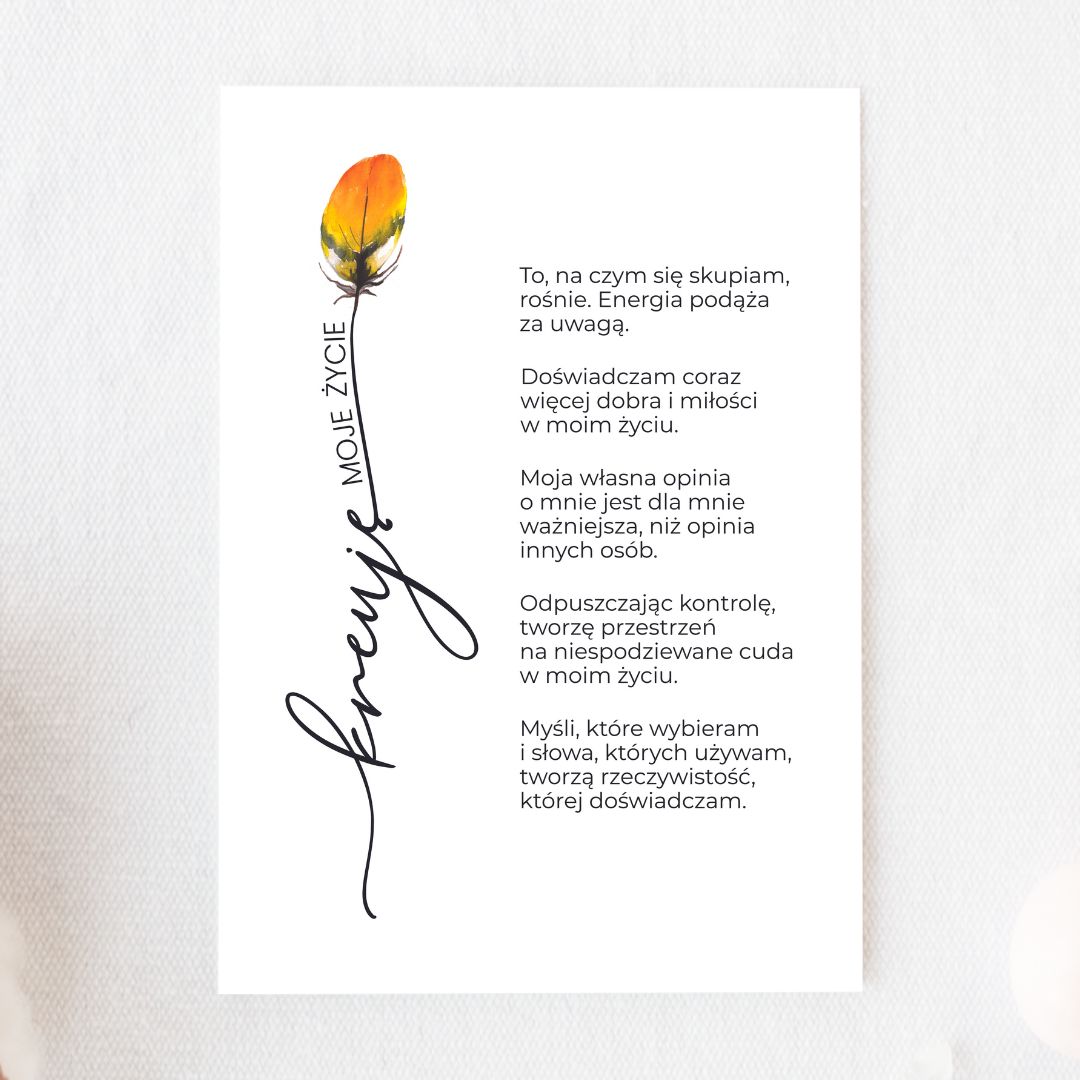 kreuję MOJE ŻYCIE
To, na czym się skupiam,
rośnie. Energia podąża
za uwagą.
Doświadczam coraz
więcej dobra i miłości
w moim życiu.
Moja własna opinia
o mnie jest dla mnie
ważniejsza, niż opinia
innych osób.
Odpuszczając kontrolę,
tworzę przestrzeń
na niespodziewane cuda
w moim życiu.
Myśli, które wybieram
i słowa, których używam,
tworzą rzeczywistość,
której doświadczam.